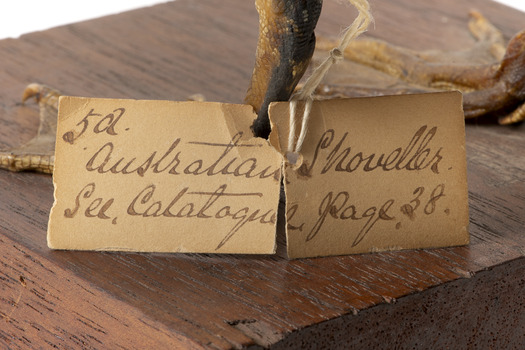 5d.
Australian Shoveller.
See, Catalogue, Page, 38.